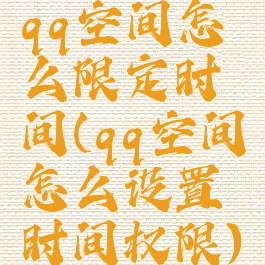 qq空间怎
么限定时
间(qq空间
怎么设置
时间权限)